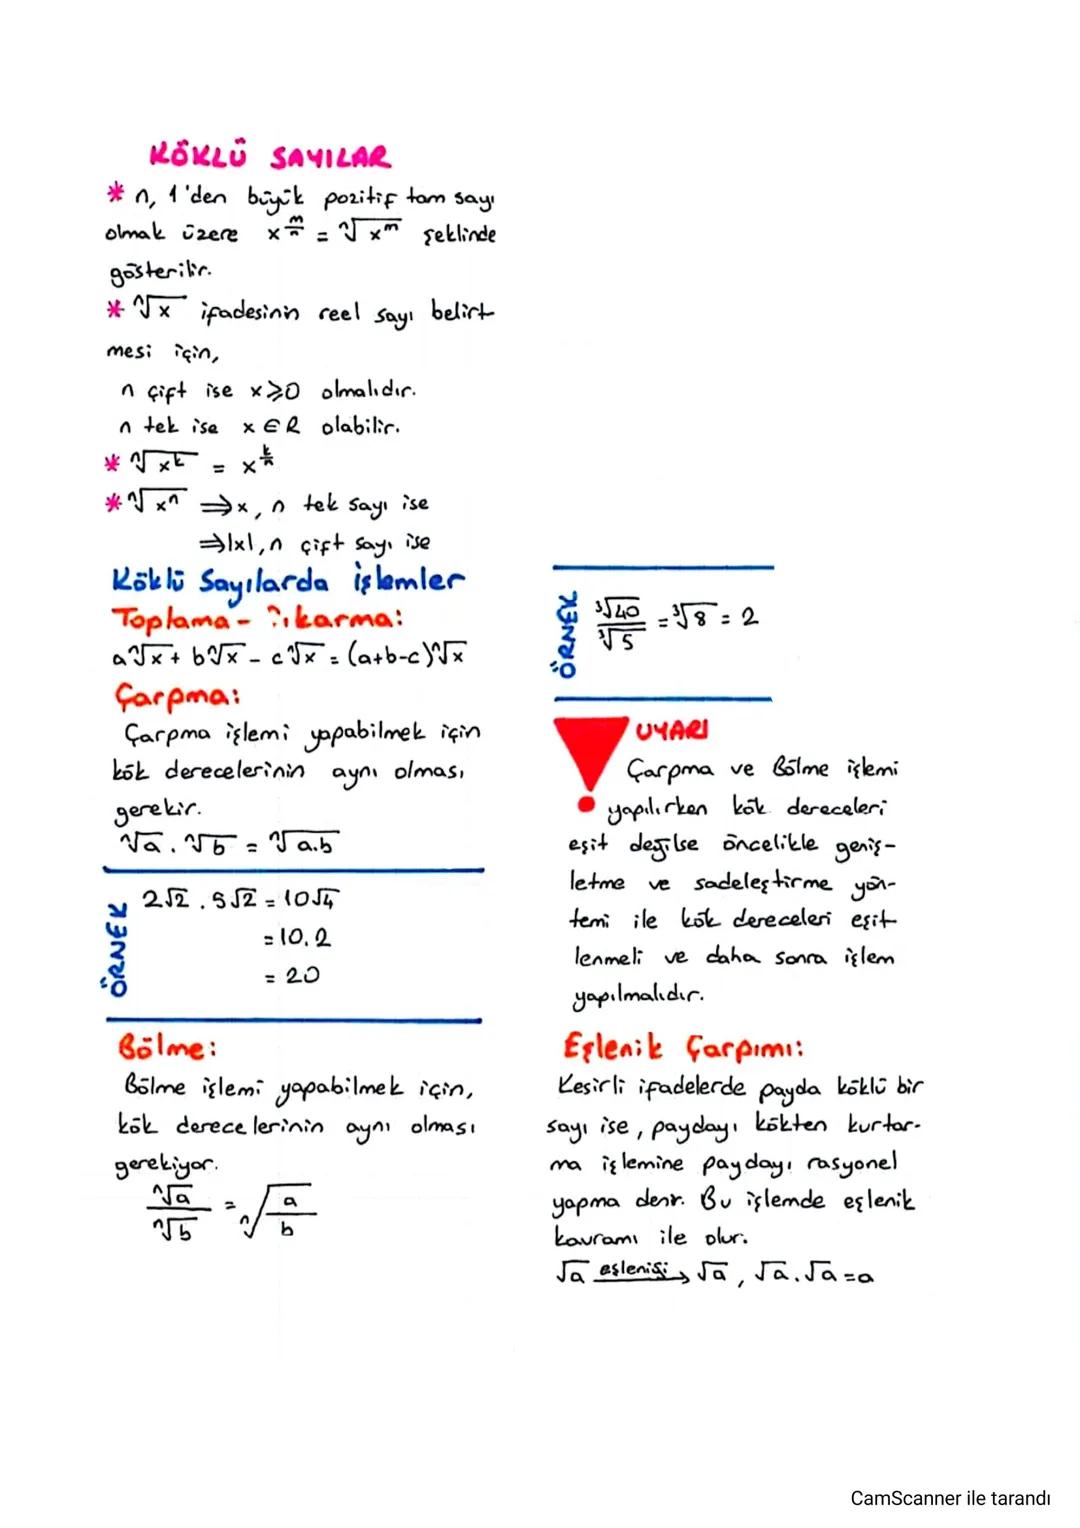 KÖKLÜ SAYILAR
* n, 1'den büyük pozitif tam sayı
olmak üzere x^(m/n) = ⁿ√x^m şeklinde
gösterilir.
* ⁿ√x ifadesinin reel sayı belirt
mesi için,
n çift ise x⩾0 olmalıdır.
n tek ise x∈R olabilir.
* ⁿ√x^k = x^(k/n)
* ⁿ√xⁿ ⇒x, n tek sayı ise
⇒|x|, n çift sayı ise
Köklü Sayılarda işlemler
Toplama - Çıkarma:
aⁿ√x + bⁿ√x - cⁿ√x = (a+b-c)ⁿ√x
Çarpma:
Çarpma işlemi yapabilmek için
kök derecelerinin aynı olması
gerekir.
ⁿ√a . ⁿ√b = ⁿ√a.b
ÖRNEK
2√2 . 5√2 = 10√4
= 10.2
= 20
Bölme:
Bölme işlemi yapabilmek için,
kök derecelerinin aynı olması
gerekiyor.
ⁿ√a / ⁿ√b = ⁿ√(a/b)
ÖRNEK
³√40 / ³√5 = ³√8 = 2
UYARI
Çarpma ve Bölme işlemi
yapılırken kök dereceleri
eşit değilse öncelikle geniş-
letme ve sadeleştirme yön-
temi ile kök dereceleri eşit
lenmeli ve daha sonra işlem
yapılmalıdır.
Eşlenik Çarpımı:
Kesirli ifadelerde payda köklü bir
sayı ise, paydayı kökten kurtar-
ma işlemine paydayı rasyonel
yapma denir. Bu işlemde eşlenik
kavramı ile olur.
√a eşleniği→ √a, √a.√a=a
CamScanner ile tarandı